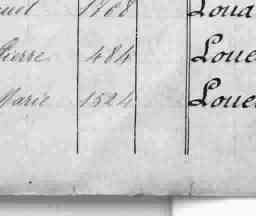 uel 1868 Loua
Pierre 484 Loue
Marie 1524 Loue